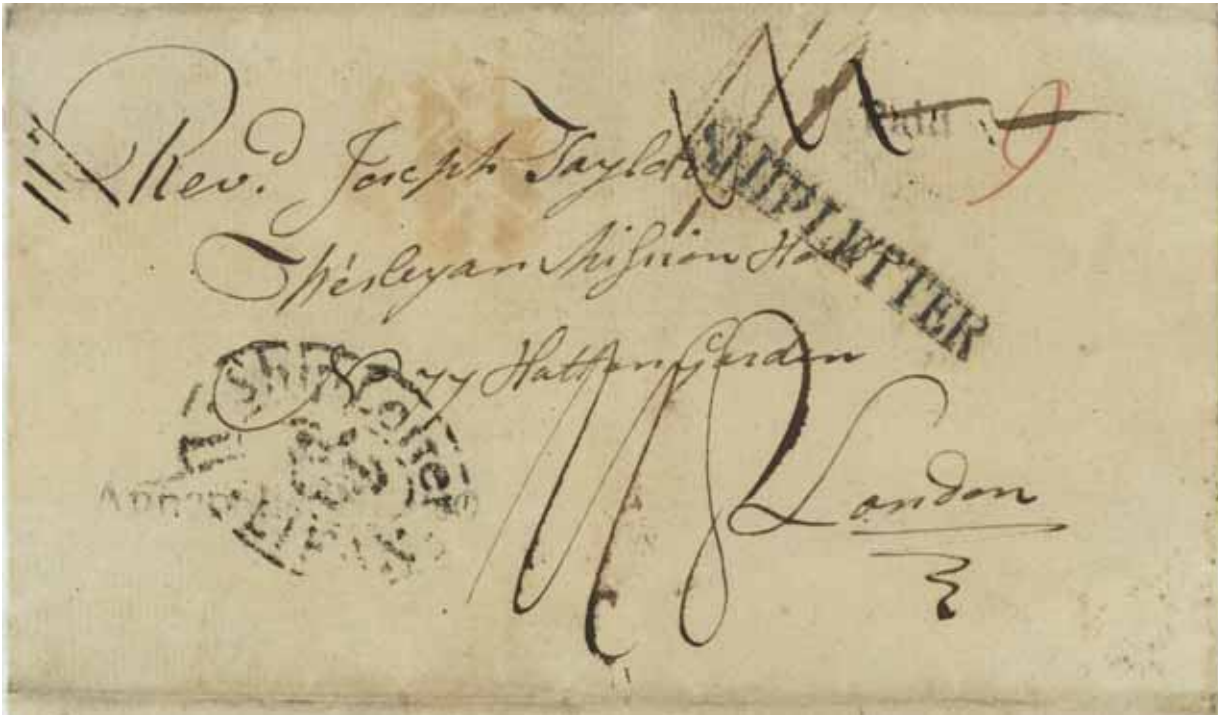 Revd. Joseph Taylor
Wesleyan Mission House
77 Hatton Garden
London
Paid 9
SHIP LETTER
Ship Letter